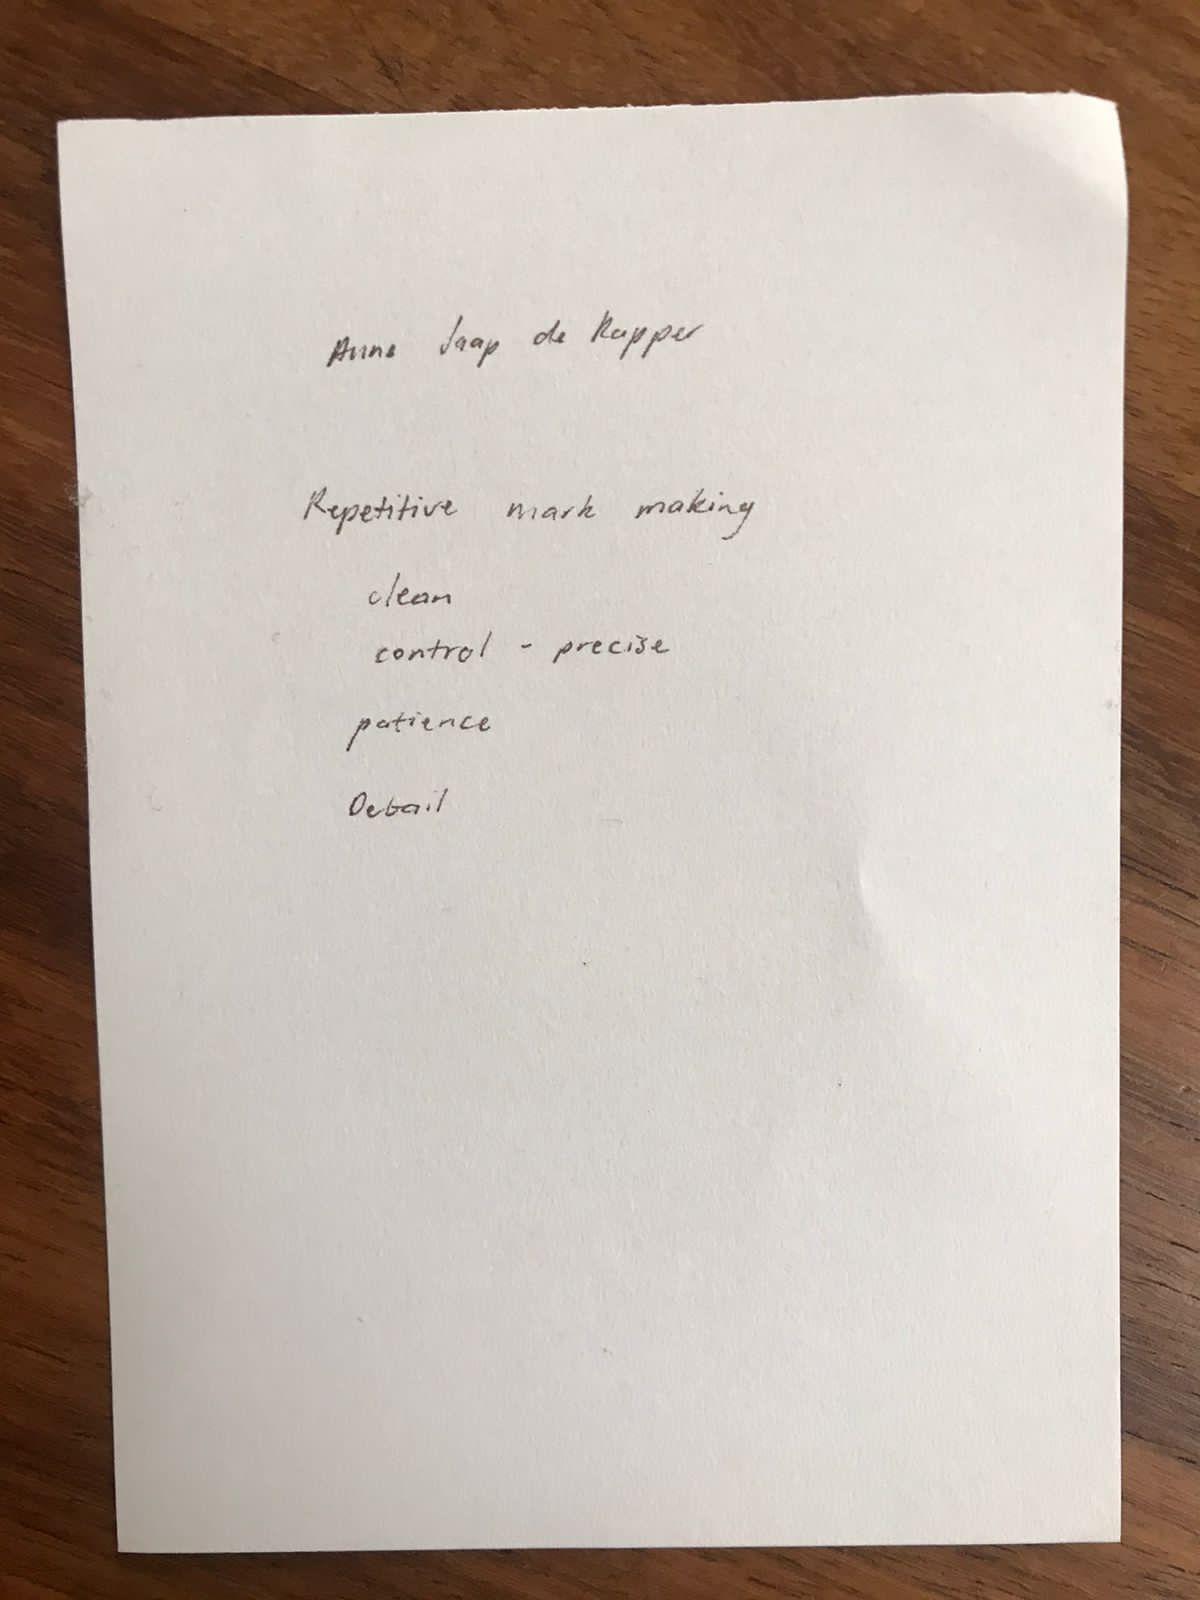 Anne Jaap de Rapper
Repetitive mark making
clean
control - precise
patience
Detail